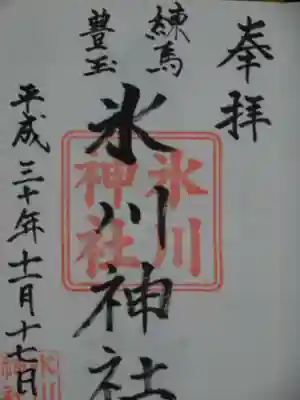 奉拝
練馬
豊玉
氷川神社
平成三十年十一月十七日
氷川
神社
氷川
神社